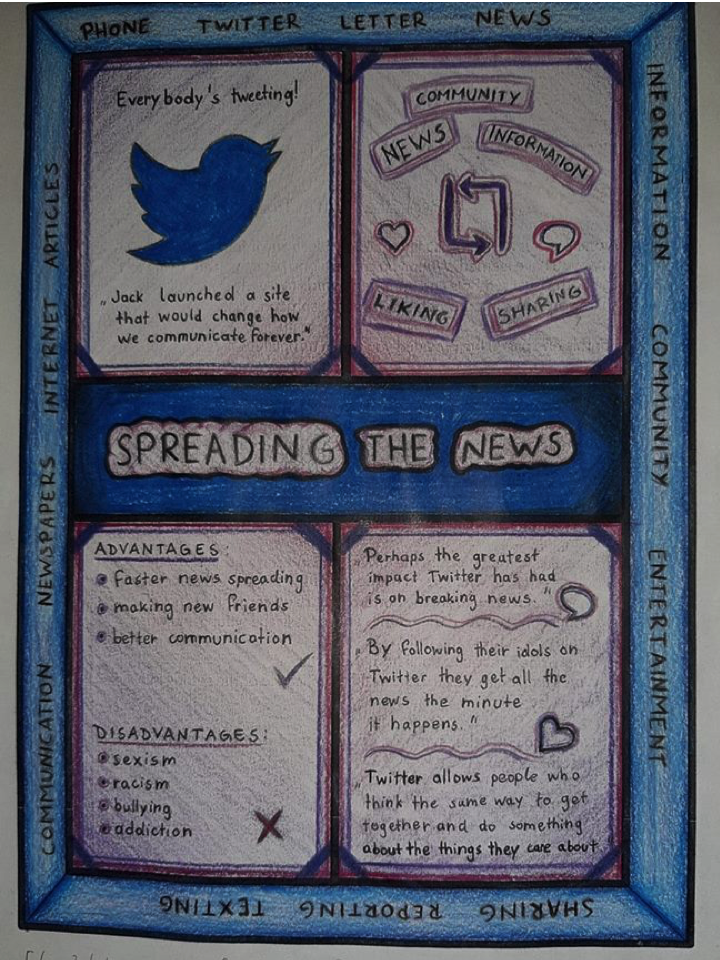 PHONE TWITTER LETTER NEWS
Everybody's tweeting!
„Jack launched a site
that would change how
we communicate forever."
COMMUNITY
NEWS
INFORMATION
LIKING
SHARING
SPREADING THE NEWS
ADVANTAGES:
faster news spreading
making new friends
better communication
DISADVANTAGES:
sexism
racism
bullying
addiction
„Perhaps the greatest
impact Twitter has had
is on breaking news."
„By following their idols on
Twitter they get all the
news the minute
it happens."
„Twitter allows people who
think the same way to get
together and do something
about the things they care about.
INFORMATION COMMUNITY ENTERTAINMENT
SHARING REPORTING TEXTING
COMMUNICATION NEWSPAPERS INTERNET ARTICLES